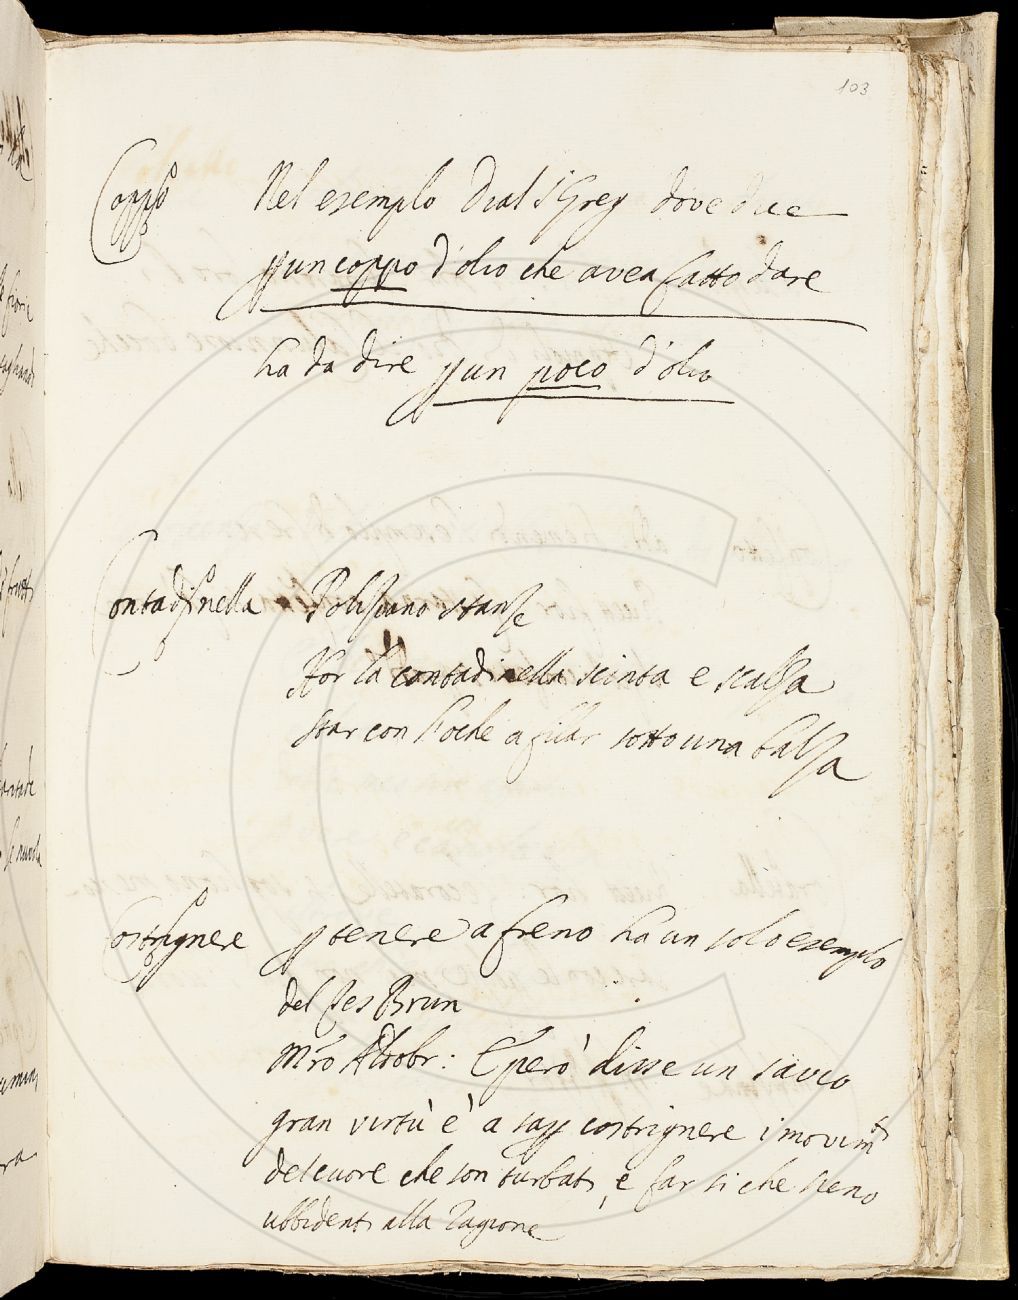 103
Coppo Nel esempio Dial S Greg dove dice
p un coppo d'olio che avea fatto dare
ha da dire p un poco d'olio
Contadinella Poliziano stanze
Hor la contadinella scinta e scalza
star con l'oche a filar sotto una balza
Costrignere p tenere a freno ha un solo esempio
del Tes Brun
Mro Aldobr: E però disse un savio
gran virtù è a sap costrignere i movimti
del cuore che son turbati, e far si che sieno
ubbidenti alla Ragione